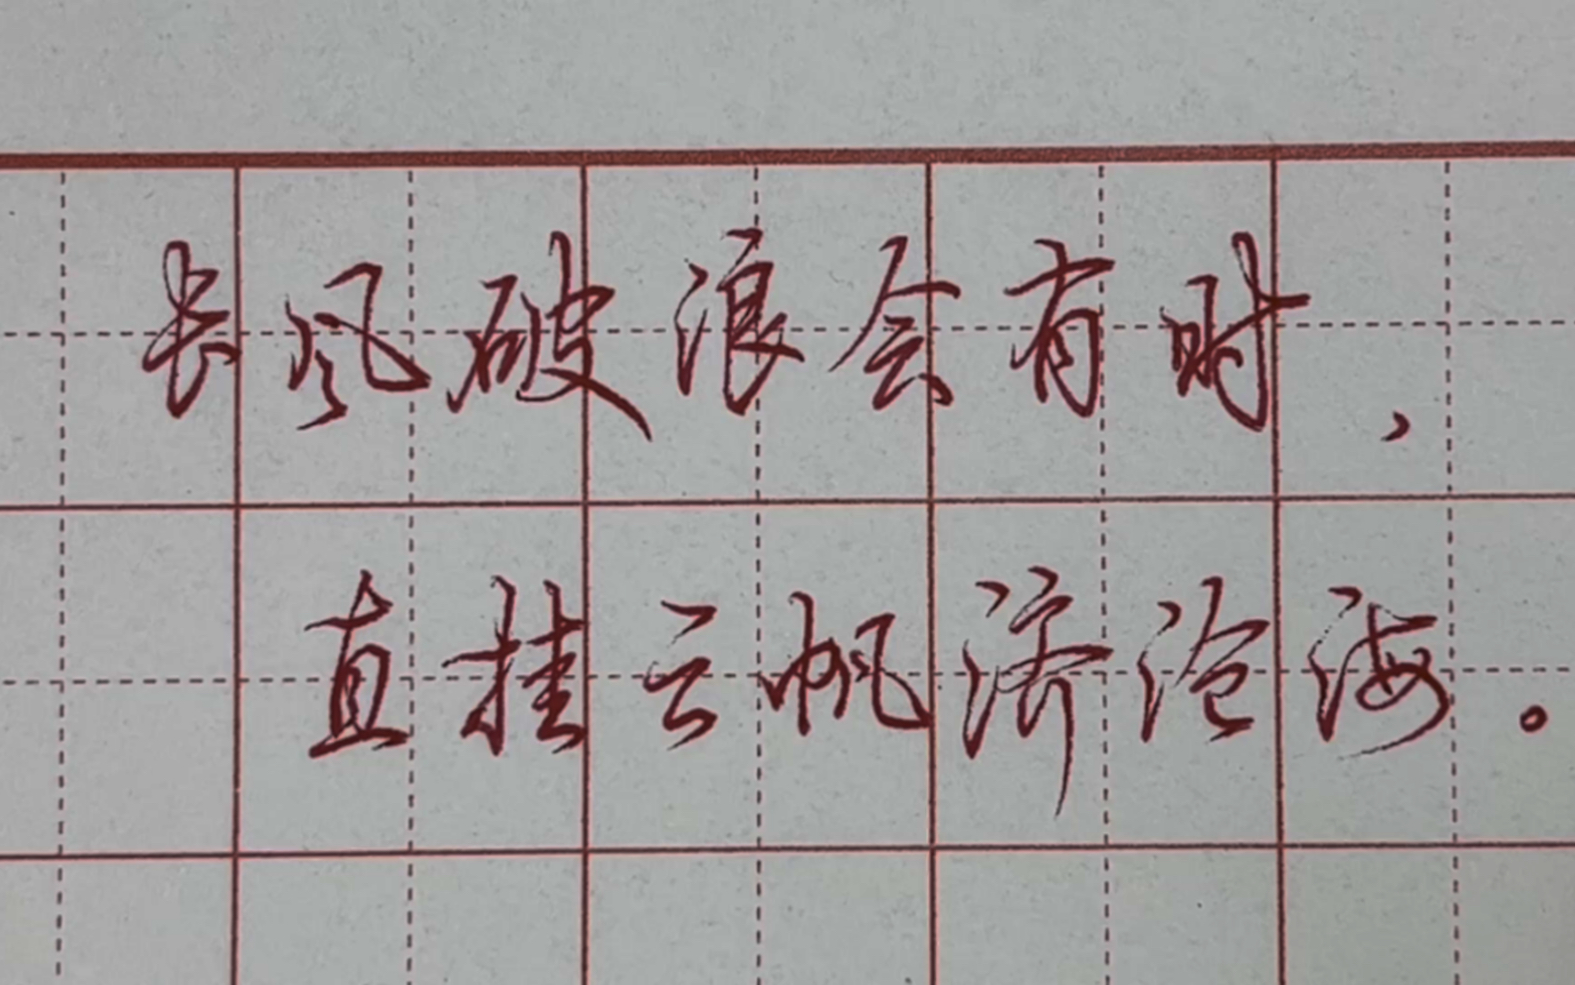 长风破浪会有时，
直挂云帆济沧海。